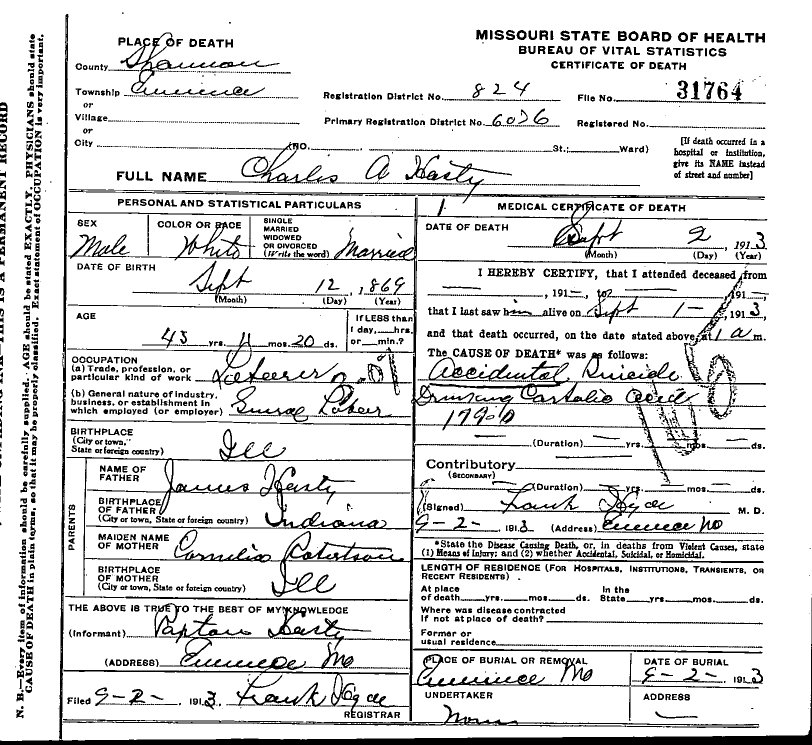 MISSOURI STATE BOARD OF HEALTH
BUREAU OF VITAL STATISTICS
CERTIFICATE OF DEATH
PLACE OF DEATH
County Shannon
Township Eminence
or
Village
or
City (NO. St.; Ward)
Registration District No. 824 File No. 31764
Primary Registration District No. 6036 Registered No.
[If death occurred in a
hospital or institution,
give its NAME instead
of street and number]
FULL NAME Charles A Hasty
PERSONAL AND STATISTICAL PARTICULARS
SEX
Male
COLOR OR RACE
White
SINGLE
MARRIED
WIDOWED
OR DIVORCED
(Write the word) Married
DATE OF BIRTH
Sept 12, 1869
(Month) (Day) (Year)
AGE
43 yrs. 11 mos. 20 ds.
If LESS than
1 day, hrs.
or min.?
OCCUPATION
(a) Trade, profession, or
particular kind of work
(b) General nature of industry,
business, or establishment in
which employed (or employer)
BIRTHPLACE
(City or town,
State or foreign country) Ill
PARENTS
NAME OF
FATHER James Hasty
BIRTHPLACE
OF FATHER
(City or town, State or foreign country) Indiana
MAIDEN NAME
OF MOTHER Cornelia Robertson
BIRTHPLACE
OF MOTHER
(City or town, State or foreign country) Ill
THE ABOVE IS TRUE TO THE BEST OF MY KNOWLEDGE
(Informant) Hasty
(ADDRESS) Eminence Mo
Filed 9-2- 1913 Frank Hyde
REGISTRAR
MEDICAL CERTIFICATE OF DEATH
DATE OF DEATH Sept 2, 1913
(Month) (Day) (Year)
I HEREBY CERTIFY, that I attended deceased from
, 191 , to , 191
that I last saw him alive on Sept 1-, 1913,
and that death occurred, on the date stated above, at 1 a m.
The CAUSE OF DEATH* was as follows:
Accidental Suicide
Drinking Carbolic Acid
(Duration) yrs. mos. ds.
Contributory
(SECONDARY)
(Duration) yrs. mos. ds.
(Signed) Frank Hyde M. D.
9-2- 1913 (Address) Eminence Mo
*State the Disease Causing Death, or, in deaths from Violent Causes, state
(1) Means of Injury; and (2) whether Accidental, Suicidal, or Homicidal.
LENGTH OF RESIDENCE (FOR HOSPITALS, INSTITUTIONS, TRANSIENTS, OR
RECENT RESIDENTS)
At place
of death yrs. mos. ds.
In the
State yrs. mos. ds.
Where was disease contracted
if not at place of death?
Former or
usual residence
PLACE OF BURIAL OR REMOVAL
Eminence Mo
DATE OF BURIAL
9-2-, 1913
UNDERTAKER
None
ADDRESS
N. B.—Every item of information should be carefully supplied. AGE should be stated EXACTLY. PHYSICIANS should state
CAUSE OF DEATH in plain terms, so that it may be properly classified. Exact statement of OCCUPATION is very important.
THIS IS A PERMANENT RECORD